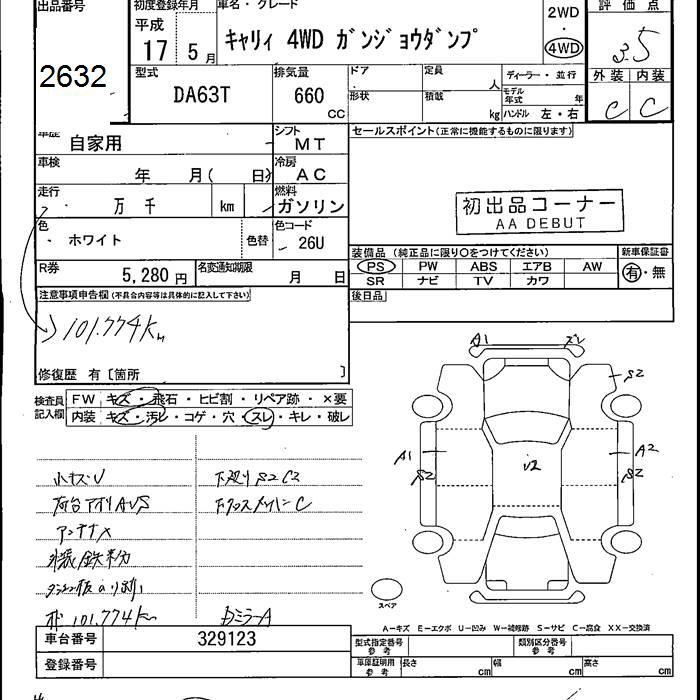 出品番号
2632
初度登録年月
平成
17 5月
車名・グレード
キャリィ 4WD ガンジョウダンプ
2WD
・
4WD
評価点
3.5
外装 内装
C C
型式
DA63T
排気量
660 CC
ドア
形状
定員
人
積載
kg
ディーラー・並行
モデル年式 年
ハンドル 左・右
車歴
自家用
シフト
MT
車検
年 月( 日)
冷房
AC
走行
万 千 km
燃料
ガソリン
色
ホワイト
色替
色コード
26U
R券
5,280 円
名変通知期限
月 日
セールスポイント(正常に機能するものに限ります)
初出品コーナー
AA DEBUT
装備品 (純正品に限り○をつけてください)
新車保証書
PS PW ABS エアB AW
SR ナビ TV カワ
有・無
後日品
注意事項申告欄(不具合内容等は具体的に記入して下さい)
101.774km
修復歴 有 [箇所 ]
検査員記入欄
FW キズ・飛石・ヒビ割・リペア跡・×要
内装 キズ・汚レ・コゲ・穴・スレ・キレ・破レ
小キズU
下廻りS2C2
荷台アオリAUS
下クロスメンバーC
アンテナX
外装鉄粉
101.774km
ミラーA
A1
スレ
S2
A1
S2
U2
A2
S2
スペア
A-キズ E-エクボ U-凹み W-補修跡 S-サビ C-腐食 XX-交換済
車台番号
329123
登録番号
型式指定番号 参考
類別区分番号 参考
車庫証明用 参考
長さ cm
幅 cm
高さ cm